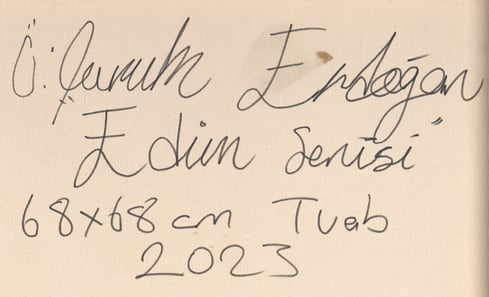 Ö. Çurum Erdoğan
Edim Serisi"
68x68 cm Tuab
2023